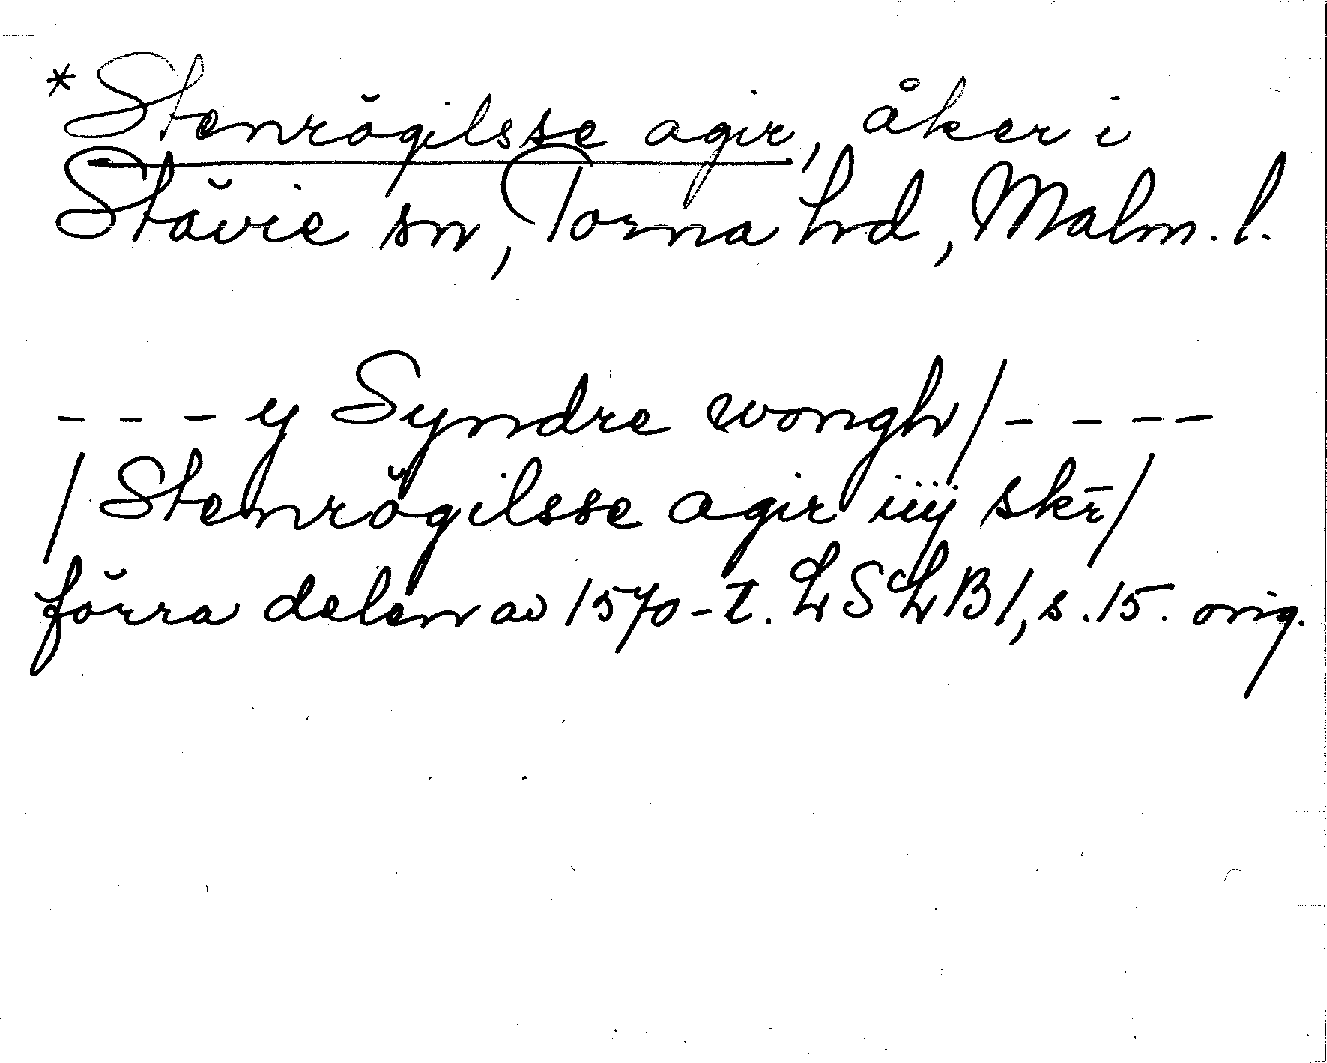 *Stenrögilsse agir, åker i
Stävie sn, Torna hd, Malm. l.
- - - y Syndre wongh/- - - -
/Stenrögilsse agir iiij skr̄/
förra delen av 1570-t. LSLB1, s.15. orig.